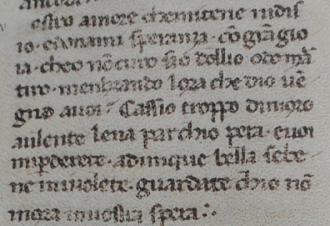 ostro amore che mi tene indis
io · e donami speranza · cō grā gio
ia · cheo nō curo sio dollio o to mā
tiro · menbrando lora che dio vē
gno a uoi · Cassio troppo dimoro
aulente lena par chio pera · e uoi
mi perderete · adunque bella se be
ne mi uolete · guardate chio nō
mora in uostra spera :·